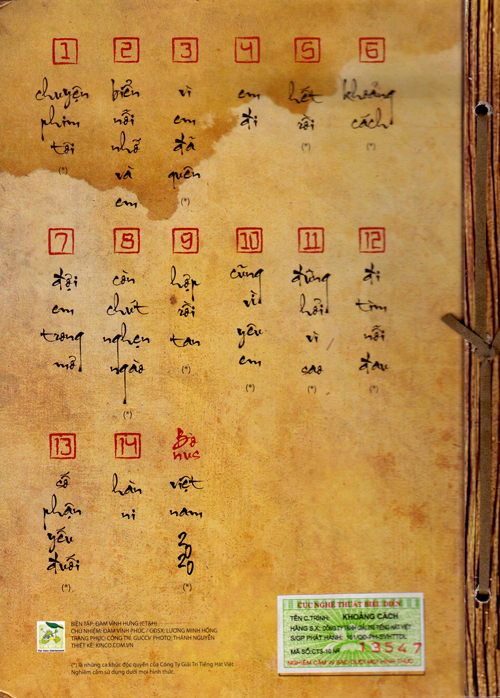 1
chuyện
phim
tôi
(*)
2
biển
nỗi
nhớ
và
em
3
vì
em
đã
quên
(*)
4
em
đi
5
hết
rồi
(*)
6
khoảng
cách
(*)
7
đợi
em
trong
mơ
8
còn
chút
nghẹn
ngào
(*)
9
hợp
rồi
tan
(*)
10
cũng
vì
yêu
em
(*)
11
đừng
hỏi
vì
sao
(*)
12
đi
tìm
nỗi
đau
(*)
13
số
phận
yếu
đuối
(*)
14
hàn
ni
Bonus
việt
nam
2020
(*)
BIÊN TẬP: ĐÀM VĨNH HƯNG (ET&H)
CHỦ NHIỆM: ĐÀM VĨNH PHÚC / GĐSX: LƯƠNG MINH HỒNG
TRANG PHỤC: CÔNG TRÍ, GUCCI/ PHOTO: THÀNH NGUYỄN
THIẾT KẾ: KINCO.COM.VN
(*) là những ca khúc độc quyền của Công Ty Giải Trí Tiếng Hát Việt
Nghiêm cấm sử dụng dưới mọi hình thức.
CỤC NGHỆ THUẬT BIỂU DIỄN
TÊN C.TRÌNH: KHOẢNG CÁCH
HÃNG S.X: CÔNG TY TNHH GIẢI TRÍ TIẾNG HÁT VIỆT
S/GP PHÁT HÀNH:
MÃ SỐ: CTS-10 Nº 13547
NGHIÊM CẤM IN SAO DƯỚI MỌI HÌNH THỨC